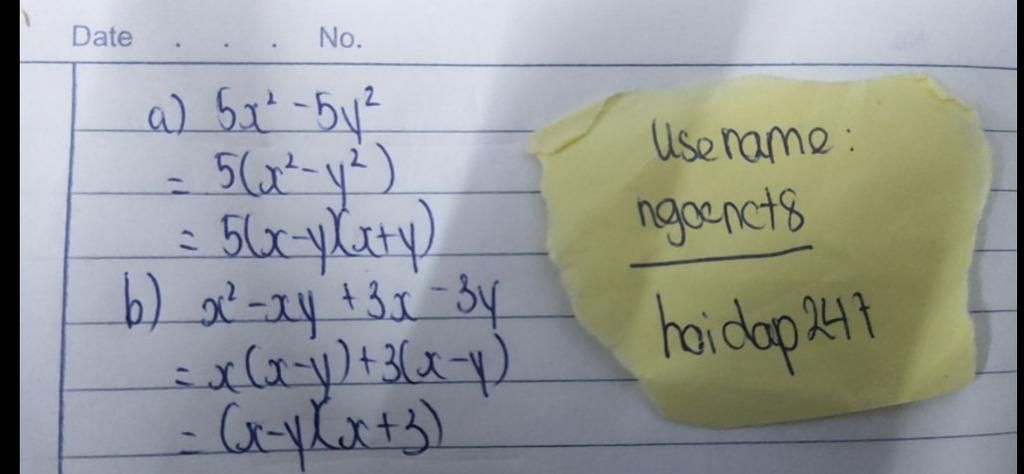 Date . . . No.
a) 5x² - 5y²
= 5(x² - y²)
= 5(x-y)(x+y)
b) x² - xy + 3x - 3y
= x(x-y) + 3(x-y)
= (x-y)(x+3)
Usename:
ngocnct8
hoidap247